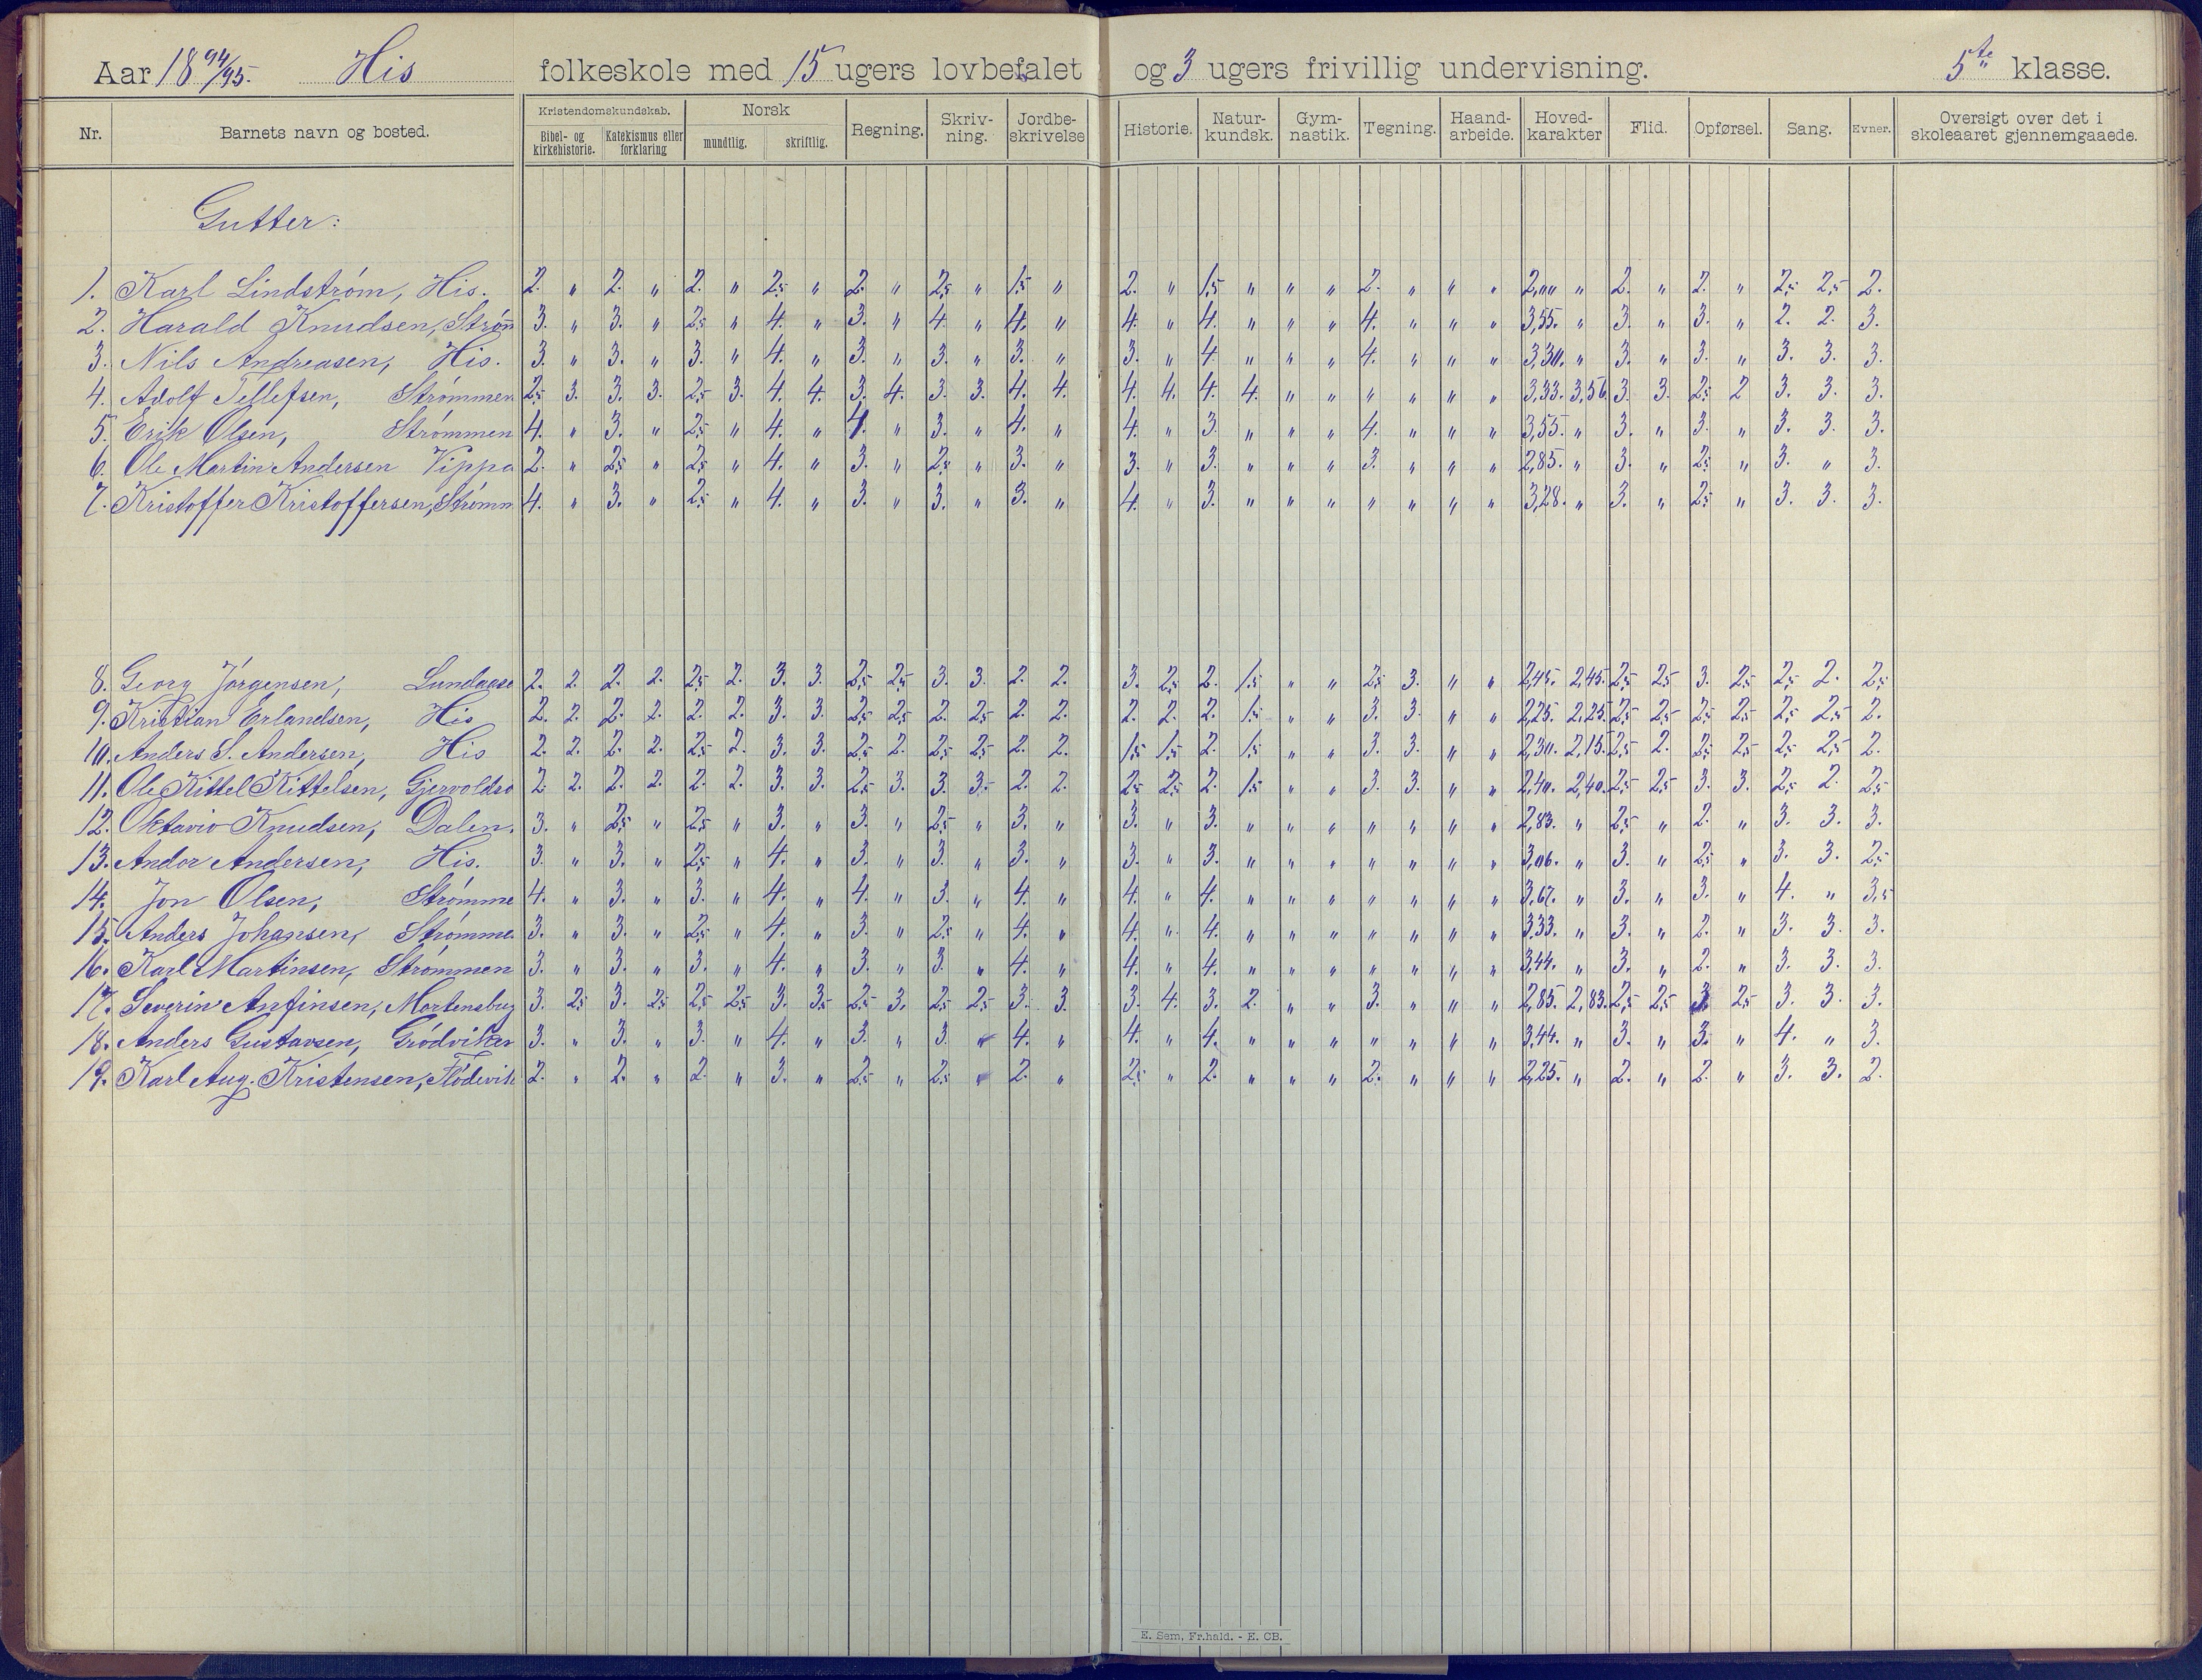 Aar 1894/95. His folkeskole med 15 ugers lovbefalet og 3 ugers frivillig undervisning. 5te klasse.
Nr. Barnets navn og bosted. Kristendomskundskab. Norsk Regning. Skriv-ning. Jordbe-skrivelse Historie. Natur-kundsk. Gym-nastik. Tegning. Haand-arbeide. Hoved-karakter Flid. Opførsel. Sang. Evner. Oversigt over det i skoleaaret gjennemgaaede.
Bibel- og kirkehistorie. Katekismus eller forklaring mundtlig. skriftlig.
Gutter:
1. Karl Lindstrøm, His. 2. " 2. " 2. " 2,5 " 2. " 2,5 " 1,5 " 2. " 1,5 " " " 2. " " " 2,00 " 2. " 2. " 2,5 2,5 2.
2. Harald Knudsen, Strøm 3. " 3. " 2,5 " 4. " 3. " 4. " 4. " 4. " 4. " " " 4. " " " 3,55. " 3. " 3. " 2. 2. 3.
3. Nils Andreasen, His. 3. " 3. " 3. " 4. " 3. " 3. " 3. " 3. " 4. " " " 4. " " " 3,30. " 3. " 3. " 3. 3. 3.
4. Adolf Tellefsen, Strømmen 2,5 3. 3. 3. 2,5 3. 4. 4. 3. 4. 3. 3. 4. 4. 4. 4. 4. 4. " " " " " " 3,33. 3,56. 3. 3. 2,5 2 3. 3. 3.
5. Erik Olsen, Strømmen 4. " 3. " 2,5 " 4. " 4. " 3. " 4. " 4. " 3. " " " 4. " " " 3,55. " 3. " 3. " 3. 3. 3.
6. Ole Martin Andersen Vippa 2. " 2,5 " 2,5 " 4. " 3. " 2,5 " 3. " 3. " 3. " " " 3. " " " 2,85. " 3. " 2,5 " 3. " 3.
7. Kristoffer Kristoffersen, Strømm 4. " 3. " 2,5 " 4. " 3. " 3. " 3. " 4. " 3. " " " " " " " 3,28. " 3. " 2,5 " 3. 3. 3.
8. Georg Jørgensen, Lundaase 2. 2. 2. 2. 2,5 2. 3. 3. 2,5 2,5 3. 3. 2. 2. 3. 2,5 2. 1,5 " " 2,5 3. " " 2,45. 2,45. 2,5 2,5 3. 2,5 2,5 2. 2,5
9. Kristian Erlandsen, His 2. 2. 2. 2. 2. 2. 3. 3. 2,5 2,5 2. 2,5 2. 2. 2. 2. 2. 1,5 " " 3. 3. " " 2,25. 2,25. 2,5 2,5 2,5 2,5 2,5 2,5 2.
10. Anders S. Andersen, His 2. 2. 2. 2. 2,5 2. 3. 3. 2,5 2. 2,5 2,5 2. 2. 1,5 1,5 2. 1,5 " " 3. 3. " " 2,30. 2,15. 2,5 2. 2,5 2,5 2,5 2,5 2.
11. Ole Kittel Kittelsen, Gjervoldsø 2. 2. 2. 2. 2. 2. 3. 3. 2,5 3. 3. 3. 2. 2. 2,5 2,5 2. 1,5 " " 3. 3. " " 2,40. 2,40. 2,5 2,5 3. 3. 2,5 2. 2,5
12. Oktavio Knudsen, Dalen. 3. " 2,5 " 2,5 " 3. " 3. " 2,5 " 3. " 3. " 3. " " " " " " " 2,83. " 2,5 " 2. " 3. 3. 3.
13. Andor Andersen, His. 3. " 3. " 2,5 " 4. " 3. " 3. " 3. " 3. " 3. " " " " " " " 3,06. " 3. " 2,5 " 3. 3. 2,5
14. Jon Olsen, Strømme 4. " 3. " 3. " 4. " 4. " 3. " 4. " 4. " 4. " " " " " " " 3,67. " 3. " 3. " 4. " 3,5
15. Anders Johansen, Strømme 3. " 3. " 2,5 " 4. " 3. " 2,5 " 4. " 4. " 4. " " " " " " " 3,33. " 3. " 2. " 3. 3. 3.
16. Karl Martinsen, Strømmen 3. " 3. " 3. " 4. " 3. " 3. " 4. " 4. " 4. " " " " " " " 3,44. " 3. " 2. " 3. 3. 3.
17. Severin Anfinsen, Mortensbug 3. 2,5 3. 2,5 2,5 2,5 3. 3,5 2,5 3. 2,5 2,5 3. 3. 3. 4. 3. 2. " " 3. " " " 2,85. 2,83. 2,5 2,5 3. 2,5 3. 3. 3.
18. Anders Gustavsen, Grødviken 3. " 3. " 3. " 4. " 3. " 3. " 4. " 4. " 4. " " " " " " " 3,44. " 3. " 3. " 4. " 3.
19. Karl Aug. Kristensen, Flødevik 2. " 2. " 2. " 3. " 2,5 " 2,5 " 2. " 2,5 " 2. " " " 2. " " " 2,25. " 2. " 2. " 3. 3. 2.
E. Sem, Fr.hald. - E. CB.